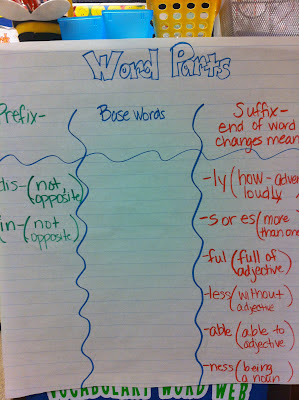 Word Parts
Prefix-
dis- (not
opposite)
in- (not
opposite)
Base words
Suffix-
end of word
changes mean
-ly (how - adver
loudly
-s or es (more
than one
-ful (full of
adjective)
-less (without
adjective)
-able (able to
adjective)
-ness (being
a noun)
VOCABULARY WORD WEB